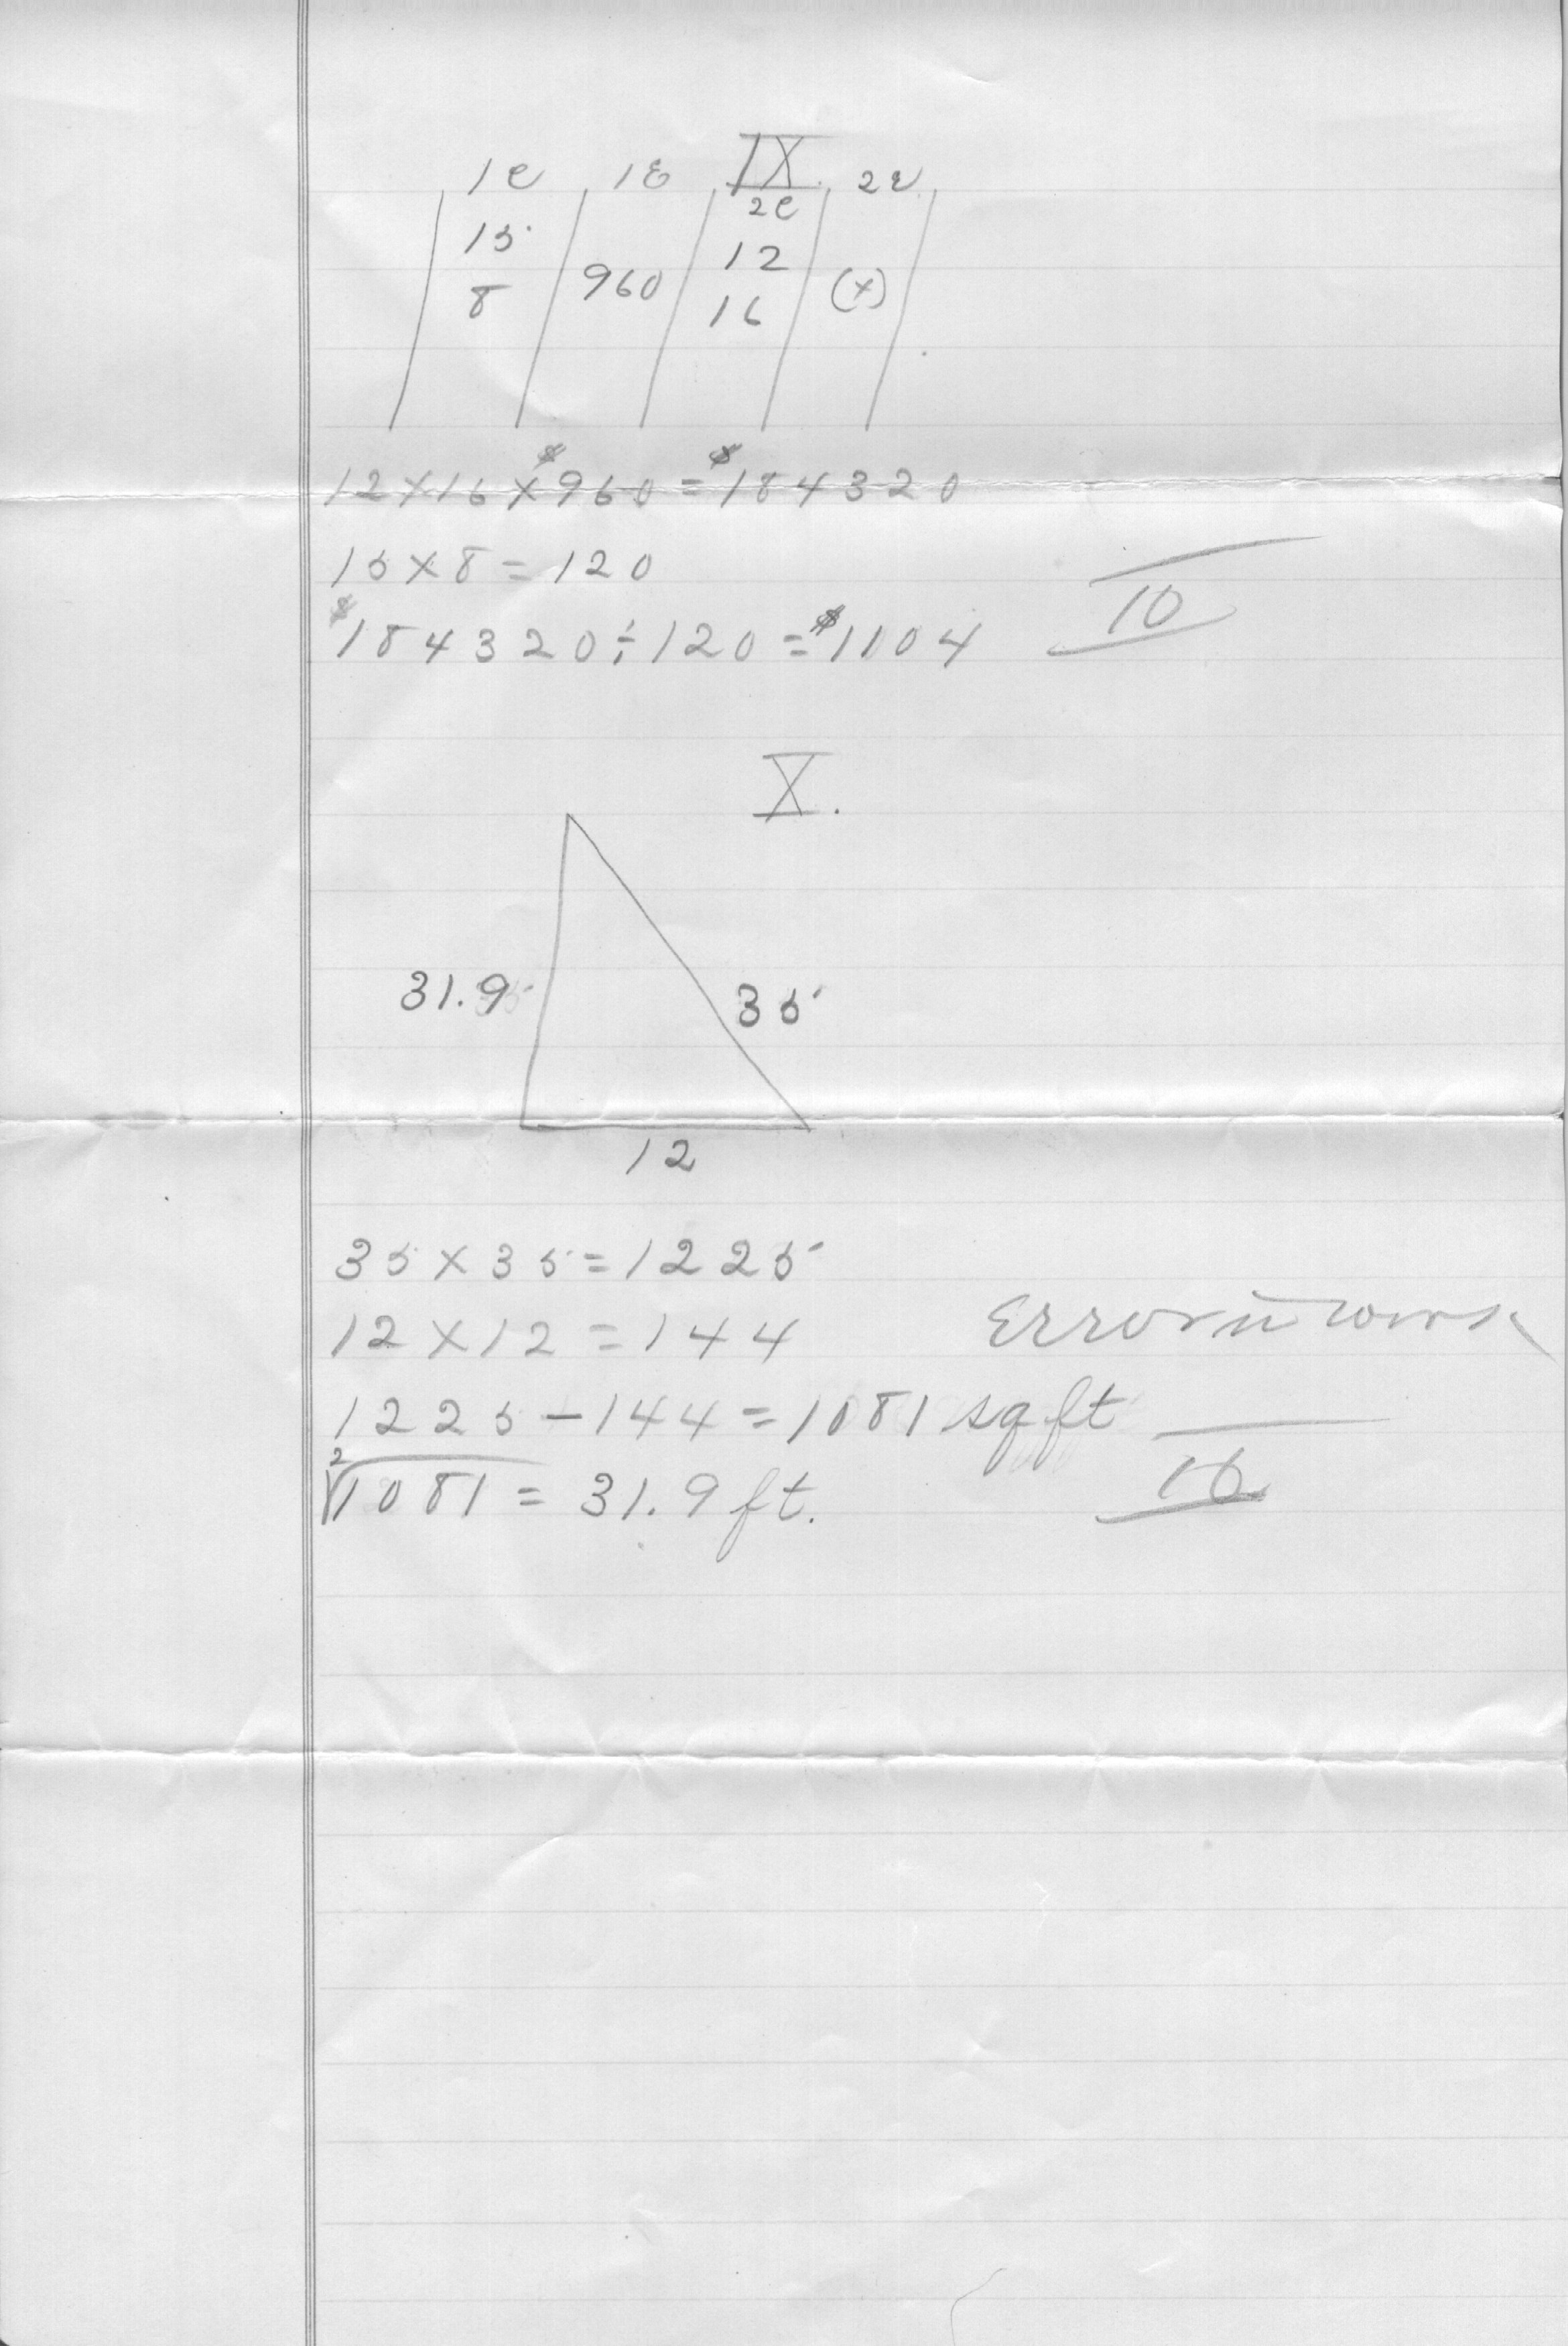 IX.
1c 1e 2c 2e
15 960 12 (x)
8 16
12×16×$960=$184320
15×8=120
$184320÷120=$1104
10
X.
31.9 35
12
35×35=1225
12×12=144
Error in work
1225-144=1081 sq ft
²√1081 = 31.9 ft.